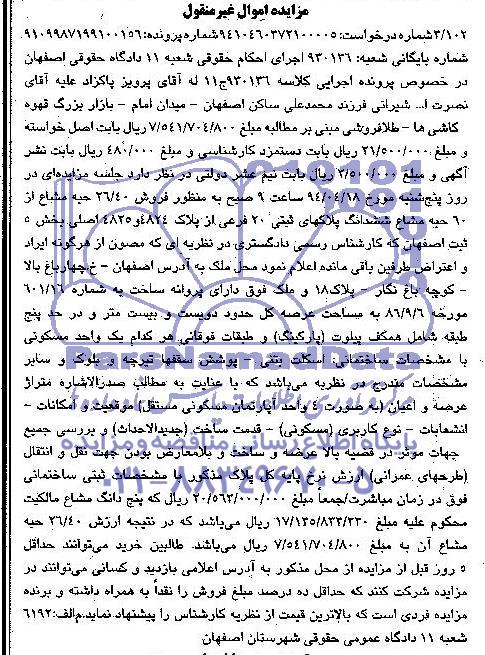 مزایده اموال غیرمنقول
۳/۱۰۲ شماره درخواست: ۹۴۱۰۴۶۰۳۷۲۱۰۰۰۰۵ شماره پرونده: ۹۱۰۹۹۸۷۱۹۹۱۰۰۱۵۶
شماره بایگانی شعبه: ۹۳۰۱۳۶ اجرای احکام حقوقی شعبه ۱۱ دادگاه حقوقی اصفهان
در خصوص پرونده اجرایی کلاسه ۹۳۰۱۳۶ج۱۱ له آقای پرویز پاکزاد علیه آقای
نصرت ا... شیرانی فرزند محمدعلی ساکن اصفهان - میدان امام - بازار بزرگ قهوه
کاشی ها - طلافروشی مبنی بر مطالبه مبلغ ۷/۵۴۱/۷۰۴/۸۰۰ ریال بابت اصل خواسته
و مبلغ ۲۱/۵۰۰/۰۰۰ ریال بابت دستمزد کارشناسی و مبلغ ۴۸۰/۰۰۰ ریال بابت نشر
آگهی و مبلغ ۲/۵۰۰/۰۰۰ ریال بابت نیم عشر دولتی در نظر دارد جلسه مزایده‌ای در
روز پنج‌شنبه مورخ ۹۴/۰۴/۱۸ ساعت ۹ صبح به منظور فروش ۲۶/۴۰ حبه مشاع از
۶۰ حبه مشاع ششدانگ پلاکهای ثبتی ۲۰ فرعی از پلاک ۴۸۲۴و۴۸۲۵ اصلی بخش ۵
ثبت اصفهان که کارشناس رسمی دادگستری در نظریه ای که مصون از هرگونه ایراد
و اعتراض طرفین باقی مانده اعلام نمود محل ملک به آدرس اصفهان - خ‌چهارباغ بالا
- کوچه باغ نگار - پلاک۱۸ و ملک فوق دارای پروانه ساخت به شماره ۶۰۱/۱۶
مورخه ۸۶/۹/۶ به مساحت عرصه کل حدود دویست و بیست متر و در حد پنج
طبقه شامل همکف پیلوت (پارکینگ) و طبقات فوقانی هر کدام یک واحد مسکونی
با مشخصات ساختمانی: اسکلت بتنی - پوشش سقفها تیرچه و بلوک و سایر
مشخصات مندرج در نظریه می‌باشد که با عنایت به مطالب صدرالاشاره متراژ
عرصه و اعیان (به صورت ۴ واحد آپارتمان مسکونی مستقل) موقعیت و امکانات -
انشعابات - نوع کاربری (مسکونی) - قدمت ساخت (جدیدالاحداث) و بررسی جمیع
جهات موثر در قضیه بالا عرضه و ساخت و بلامعارض بودن جهت نقل و انتقال
(طرحهای عمرانی) ارزش نرخ پایه کل پلاک مذکور با مشخصات ثبتی ساختمانی
فوق در زمان مباشرت/جمعاً مبلغ ۲۰/۵۶۳/۰۰۰/۰۰۰ ریال که پنج دانگ مشاع مالکیت
محکوم علیه مبلغ ۱۷/۱۳۵/۸۳۳/۲۳۰ ریال می‌باشد که در نتیجه ارزش ۲۶/۴۰ حبه
مشاع آن به مبلغ ۷/۵۴۱/۷۰۴/۸۰۰ ریال می‌باشد. طالبین خرید می‌توانند حداقل
۵ روز قبل از مزایده از محل مذکور به آدرس اعلامی بازدید و کسانی می‌توانند در
مزایده شرکت کنند که حداقل ده درصد مبلغ فروش را نقداً به همراه داشته و برنده
مزایده فردی است که بالاترین قیمت از نظریه کارشناس را پیشنهاد نماید.م‌الف:۶۱۹۲
شعبه ۱۱ دادگاه عمومی حقوقی شهرستان اصفهان
ParsNamadData
پایگاه اطلاع رسانی مناقصه و مزایده
۰۲۱-۸۸۳۴۹۶۷۰-۵